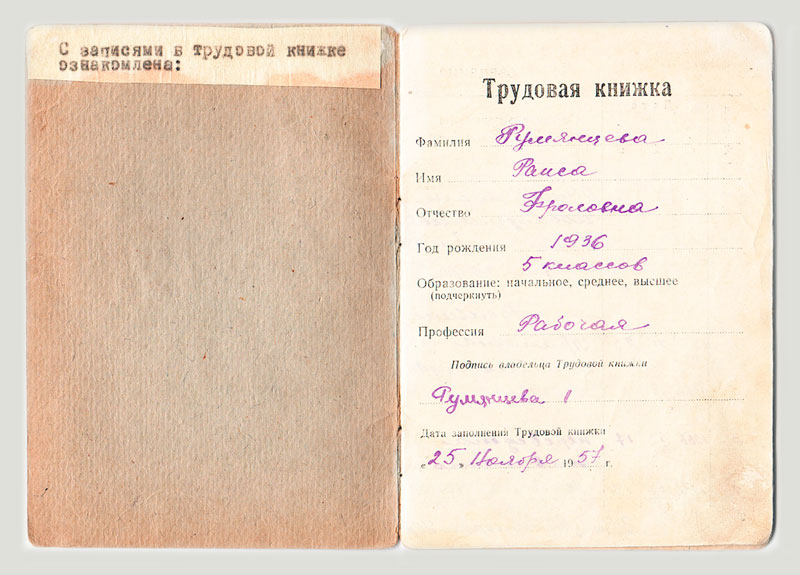 С записями в трудовой книжке
ознакомлена:
Трудовая книжка
Фамилия Румянцева
Имя Раиса
Отчество Фроловна
Год рождения 1936
5 классов
Образование: начальное, среднее, высшее
(подчеркнуть)
Профессия Рабочая
Подпись владельца Трудовой книжки
Румянцева
Дата заполнения Трудовой книжки
«25» Ноября 1957 г.